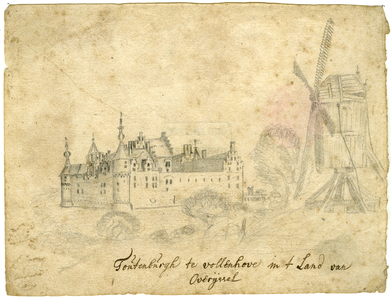 Toutenburgh te vollenhove in t Land van
Overijssel